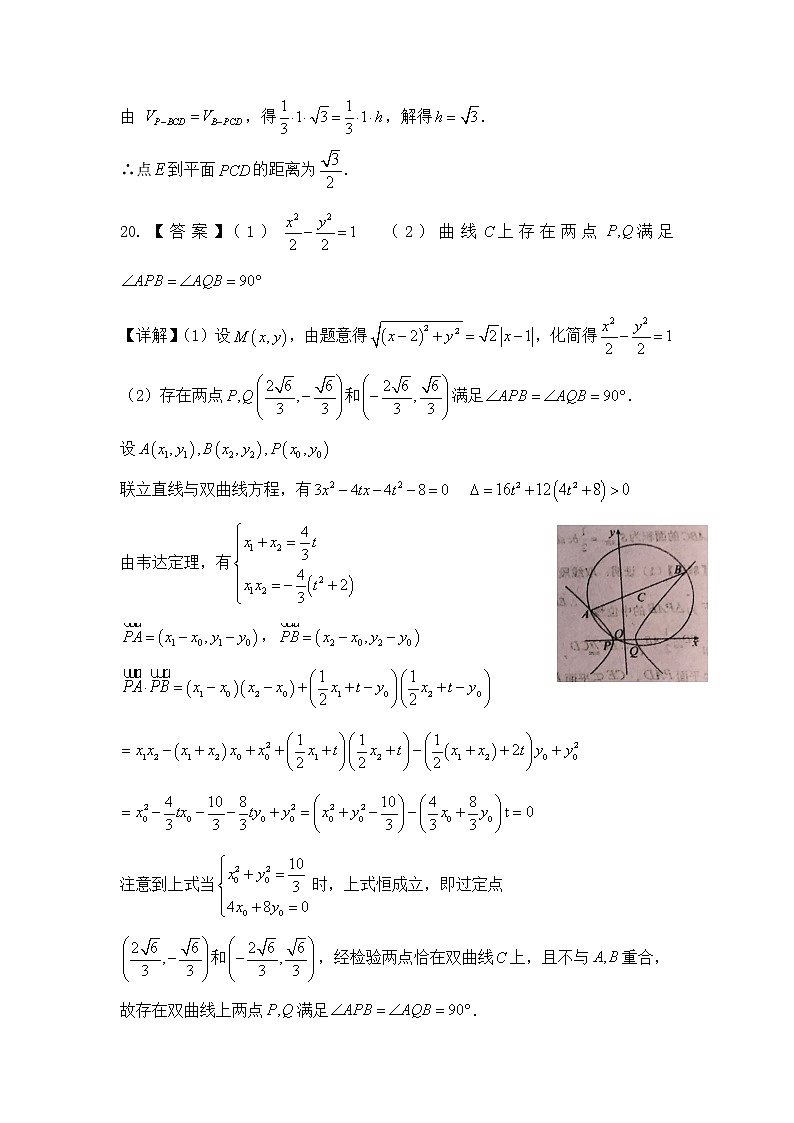 由 V_{P-BCD}=V_{B-PCD},得 1/3·1·√3=1/3·1·h,解得h=√3.
∴点E到平面PCD的距离为√3/2.
20.【答案】(1) x²/2-y²/2=1 (2)曲线C上存在两点P,Q满足
∠APB=∠AQB=90°
【详解】(1)设M(x,y),由题意得√((x-2)²+y²)=√2|x-1|,化简得x²/2-y²/2=1
(2)存在两点P,Q(2√6/3,-√6/3)和(-2√6/3,√6/3)满足∠APB=∠AQB=90°.
设A(x₁,y₁),B(x₂,y₂),P(x₀,y₀)
联立直线与双曲线方程,有3x²-4tx-4t²-8=0 Δ=16t²+12(4t²+8)>0
由韦达定理,有{x₁+x₂=4/3t
x₁x₂=-4/3(t²+2)
PA=(x₁-x₀,y₁-y₀),PB=(x₂-x₀,y₂-y₀)
PA·PB=(x₁-x₀)(x₂-x₀)+(1/2x₁+t-y₀)(1/2x₂+t-y₀)
=x₁x₂-(x₁+x₂)x₀+x₀²+(1/2x₁+t)(1/2x₂+t)-(1/2(x₁+x₂)+2t)y₀+y₀²
=x₀²-4/3tx₀-10/3-8/3ty₀+y₀²=(x₀²+y₀²-10/3)-(4/3x₀+8/3y₀)t=0
注意到上式当{x₀²+y₀²=10/3
4x₀+8y₀=0
时,上式恒成立,即过定点
(2√6/3,-√6/3)和(-2√6/3,√6/3),经检验两点恰在双曲线C上,且不与A,B重合,
故存在双曲线上两点P,Q满足∠APB=∠AQB=90°.
y
B
C
A
O
P
Q
x